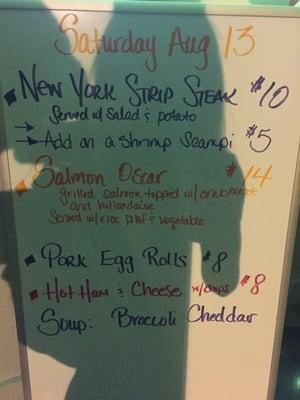 Saturday Aug 13
New York Strip Steak $10
Served w/ salad & potato
Add on a shrimp Scampi $5
Salmon Oscar $14
grilled salmon topped w/ crabmeat
and hollandaise
Served w/ rice pilaf & vegetable
Pork Egg Rolls $8
Hot Ham & Cheese w/ chips $8
Soup: Broccoli Cheddar